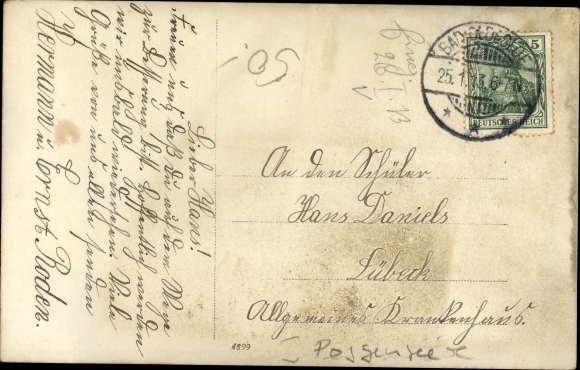 Lieber Hans!
Freuen uns, daß Du auf dem Wege
zur Besserung bist. Hoffentlich werden
wir uns bald wiedersehen. Viele
Grüße von uns allen senden
Hermann u. Ernst Roden.
50.-
26/I. 13
BAD OLDESLOE
25.1.13. 6-7N
5
DEUTSCHES REICH
An den Schüler
Hans Daniels
Lübeck
Allgemeines Krankenhaus.
4899